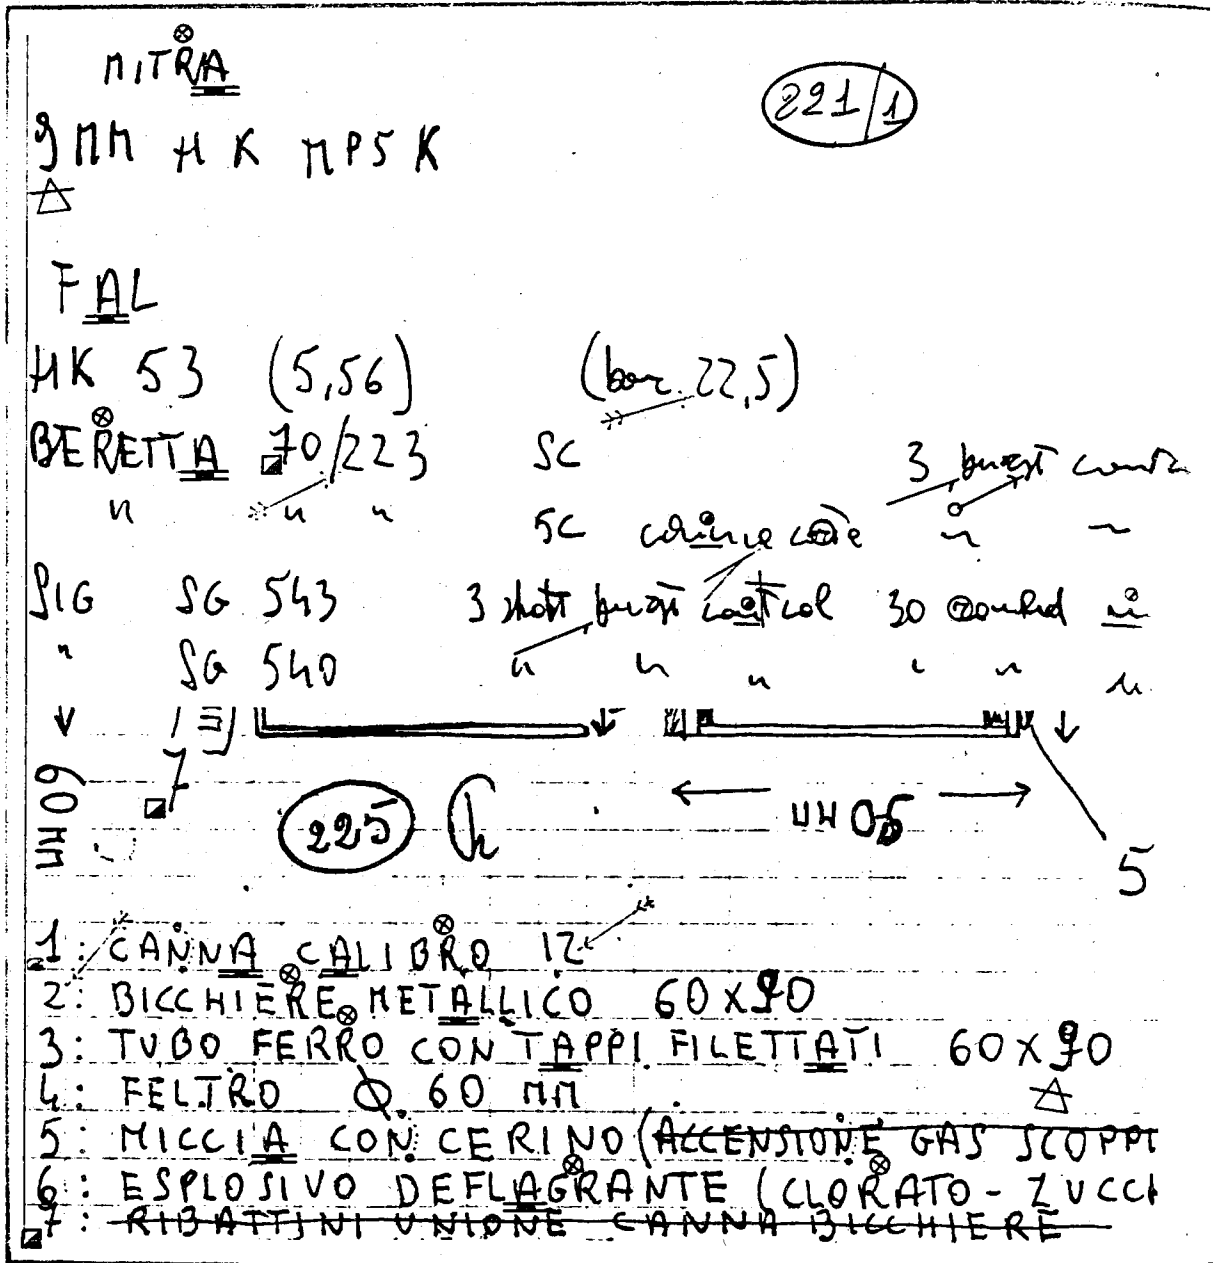 MITRA
221/1
9MM HK MP5K
FAL
HK 53 (5,56) (bar. 22,5)
BERETTA 70/223 SC 3 burst
" " " SC
SIG SG 543 3 shots burst control 30 round
" SG 540 " " " " " "
7
60 MM
225
90 MM
5
1: CANNA CALIBRO 12
2: BICCHIERE METALLICO 60x90
3: TUBO FERRO CON TAPPI FILETTATI 60x90
4: FELTRO Ø 60 MM
5: MICCIA CON CERINO (ACCENSIONE GAS SCOPPI
6: ESPLOSIVO DEFLAGRANTE (CLORATO - ZUCCH
7: RIBATTINI UNIONE CANNA BICCHIERE